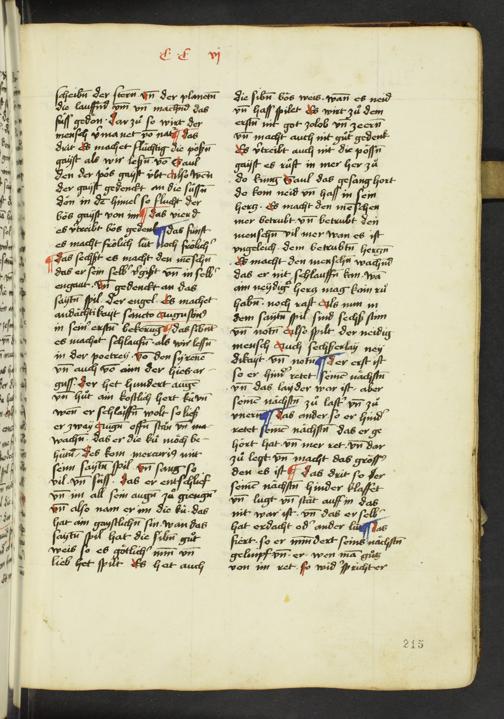 CC vj
scheibn der stern vn̄ der planetn
die lauffnd vm̄ vn̄ machnd das
süss gedon. Dar zů so wirt der
mensch d' ma net vō nat ¶ das
drit Es machet fluchtig die pösn̄
gaist als wir lesn̄ vō Saul
den der pös gaist übt Also wen
der gaist gedenckt an die süssn
don in dē himel so flucht der
bös gaist von im ¶ das vierd
es vtreibt bös gedenck ¶ das fünft
es macht frölich lüt noch frölich'
¶ das sechst es macht den menschn
das er sein selb' v̄gisst vn̄ in selb'
engaut. vn̄ gedenckt an das
saytn̄ spil der engel. Es machet
andächtikait sancto augustino
in seim erstn̄ bekerug ¶ das sibnt
es machet schlauffn. als wir lesn̄
in der poetrey. Vō den syrenē
vn̄ auch vō aim der hies ar-
guss. Der het hundert augē
vn̄ hüt aim kostlich hert küwn
wen er schlauffn̄ wolt so lies
er zway Augn offn stān vn̄ ma
wachn. das er die kü möch be-
hütn̄. Do kom mercurius mit
seim saytn̄ spil. vn̄ sang so
vil vn̄ süss. das er entschlieff
vn̄ im all sein augn̄ zu giengn̄
vn̄ also nam er im die kü. das
hat ain gaystlichn̄ sin. wan das
saytn̄ spil hat die sibn̄ güt
weis so es götlich' nim̄ vn̄
lieb het spilt. Es het auch
die sibn̄ bös weis. wan̄ es neid
vn̄ hass spilt. Es wirt zů dem
ersn̄ mit got zolob vn̄ zeern
vn̄ macht auch nit güt gedenk
Es vtreibt auch nit die pössn̄
gaist es rüst in mer her zů
do küng Saul das gesang hort
do kom neid vn̄ hass in sein
hercz. Es macht den menschen
mer betrubt vn̄ betrubt den
menschn̄ vil mer wan es ist
vngeleich dem betrubtn̄ herczn
Es macht den menschn̄ wachnd
das er nit schlauffn̄ kan. wā
ain neydigs hercz mag kain rū
habn̄. noch rast. Als nun in
dem saytn̄ spil sind sechs stim
vn̄ notn̄. Also spilt der neidig
mensch Auch sechserlay ney
dikayt vn̄ notn̄ ¶ der erst ist
so er hind' retet seinē nächstn
vn̄ das layder war ist. aber
seinē nächstn zu last vn̄ zů
vnern ¶ das ander so er hind'
retet seinē nächstn das er ge
hört hat vn̄ mer ret. vn̄ dar
zů legt vn̄ macht das gröss'
den es ist ¶ das drit so der
seinē nächstn hinder klaffet
vn̄ lugt vn̄ stät auff im das
nit war ist. vn̄ das er selb'
hat erdacht od' ander lüt ¶ das
fiert. so er mindert seins nächstn
gelimpf vn̄ er. wen mā gütz
von im ret. so wid' spricht er
215